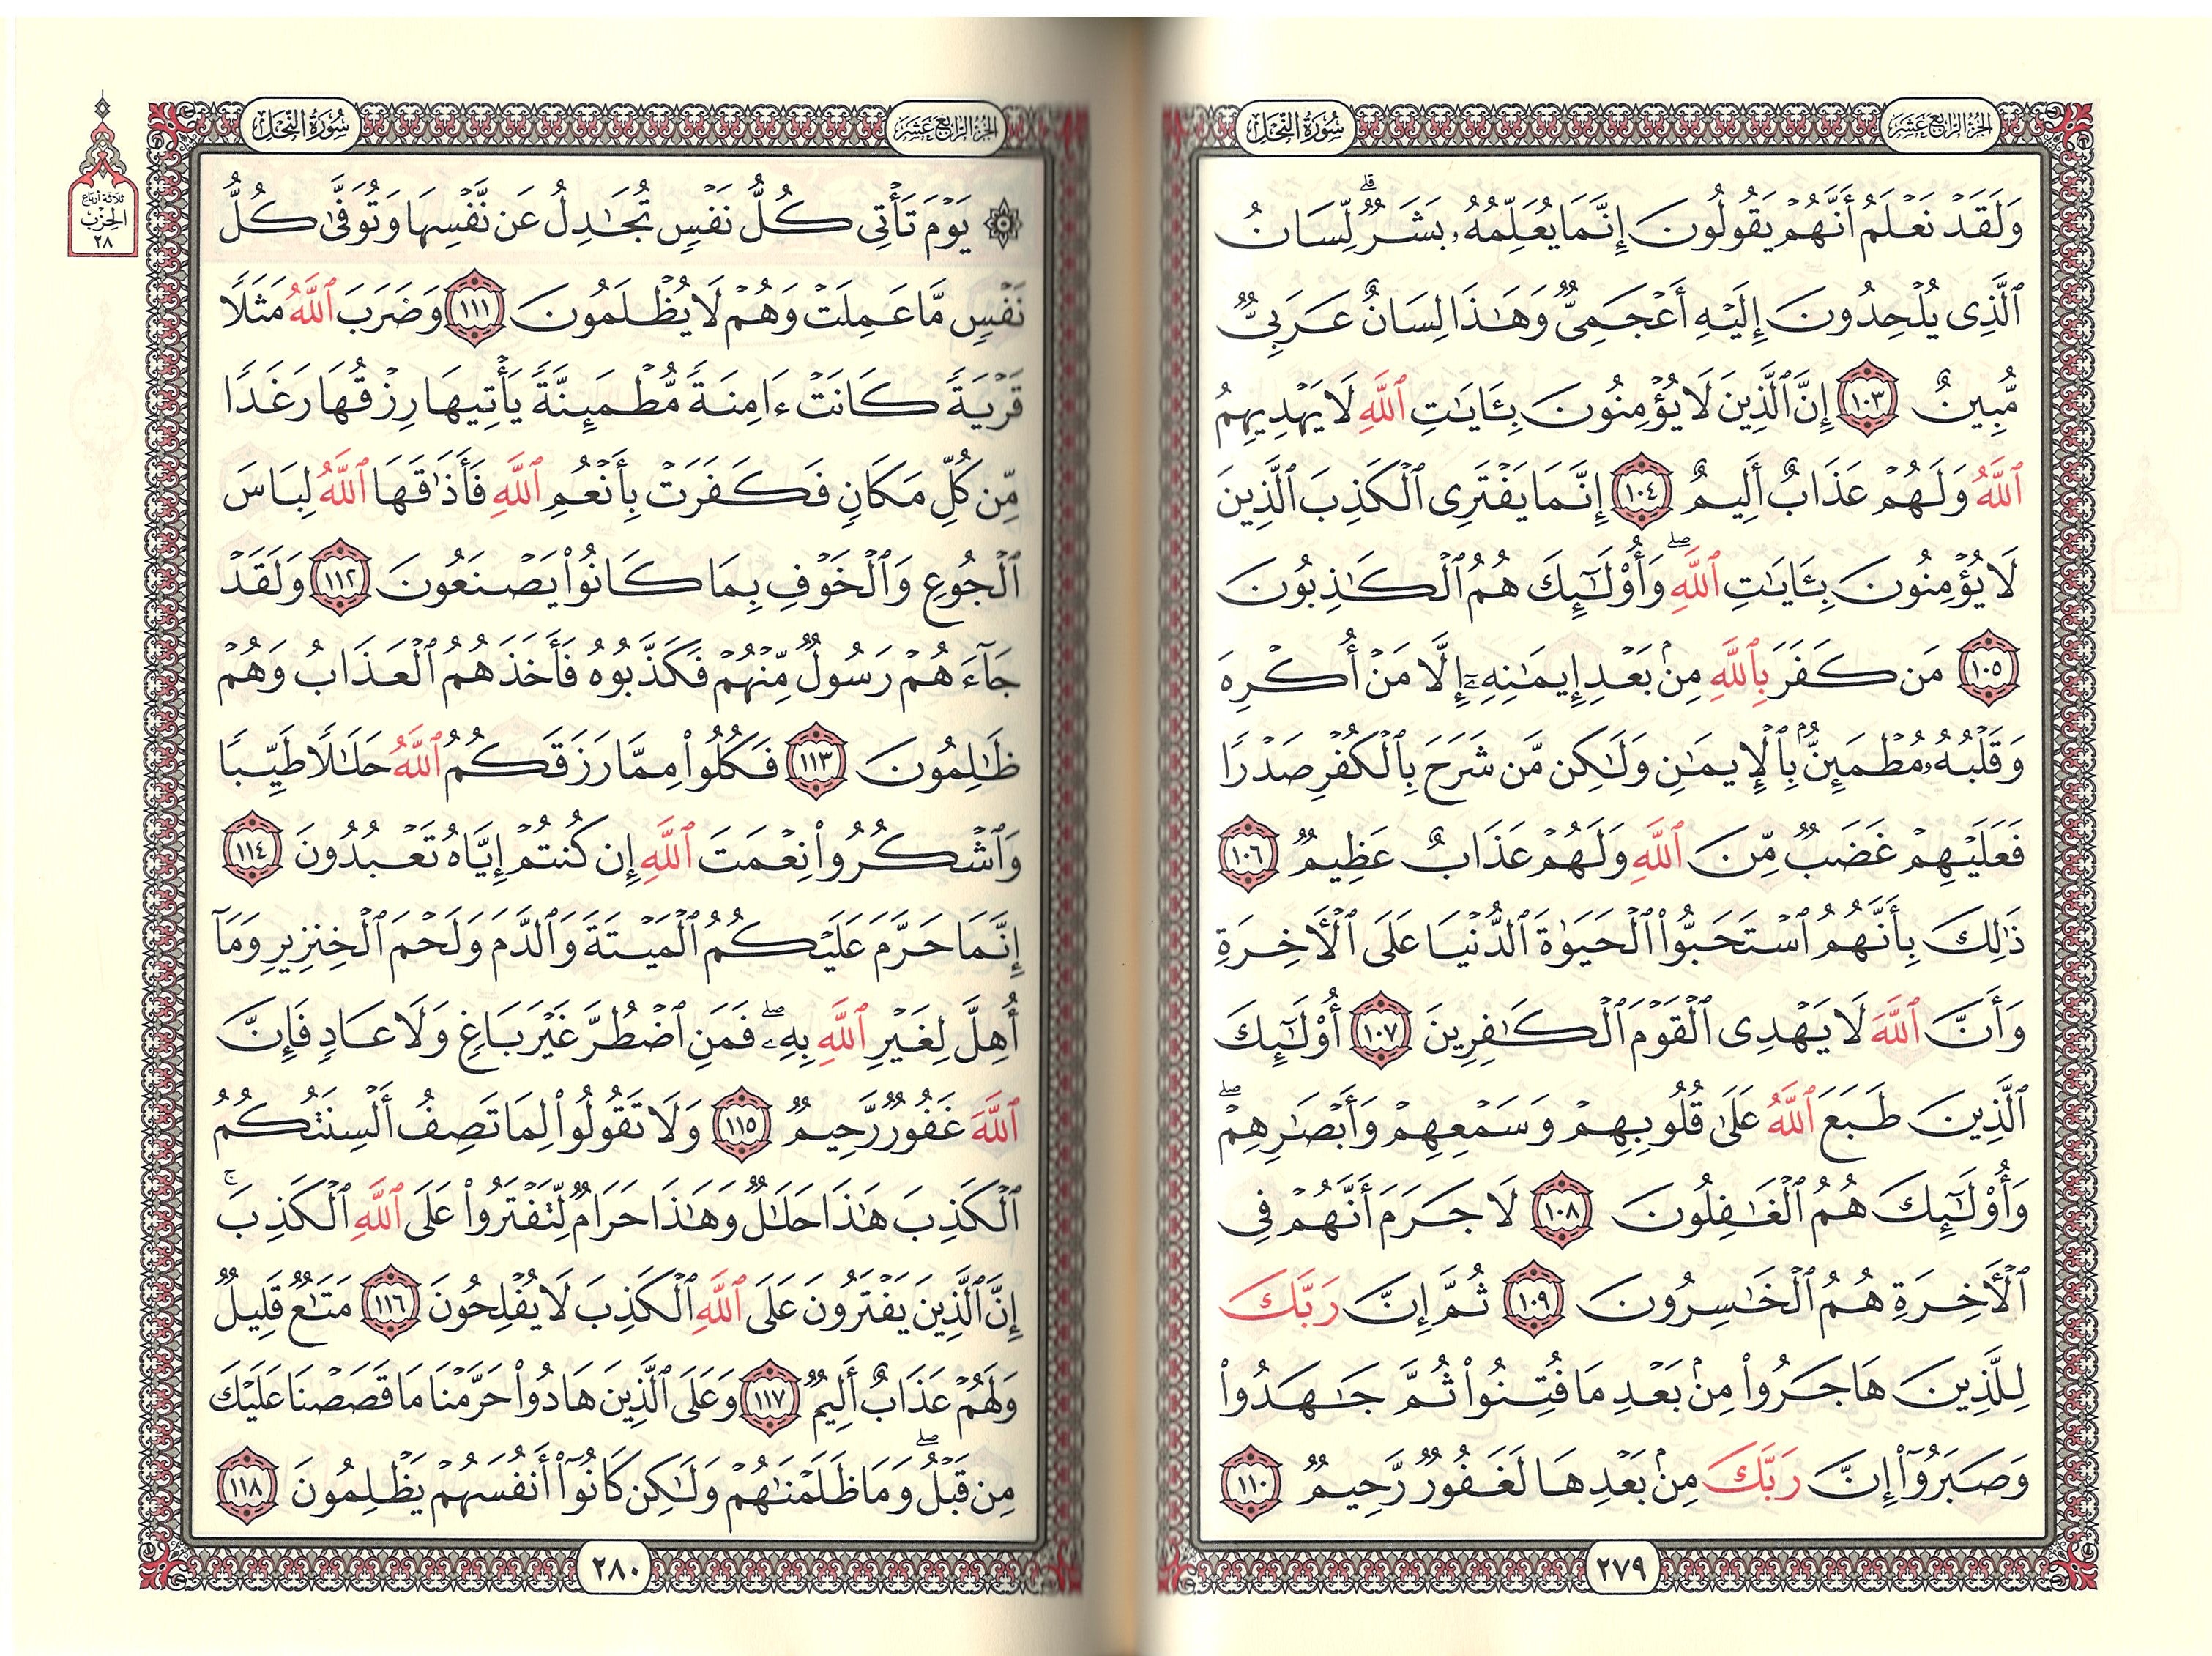 الجزء الرابع عشر
سورة النحل
وَلَقَدۡ نَعۡلَمُ أَنَّهُمۡ يَقُولُونَ إِنَّمَا يُعَلِّمُهُۥ بَشَرٞۗ لِّسَانُ
ٱلَّذِي يُلۡحِدُونَ إِلَيۡهِ أَعۡجَمِيّٞ وَهَٰذَا لِسَانٌ عَرَبِيّٞ
مُّبِينٌ ١٠٣ إِنَّ ٱلَّذِينَ لَا يُؤۡمِنُونَ بِـَٔايَٰتِ ٱللَّهِ لَا يَهۡدِيهِمُ
ٱللَّهُ وَلَهُمۡ عَذَابٌ أَلِيمٌ ١٠٤ إِنَّمَا يَفۡتَرِي ٱلۡكَذِبَ ٱلَّذِينَ
لَا يُؤۡمِنُونَ بِـَٔايَٰتِ ٱللَّهِۖ وَأُوْلَٰٓئِكَ هُمُ ٱلۡكَٰذِبُونَ
١٠٥ مَن كَفَرَ بِٱللَّهِ مِنۢ بَعۡدِ إِيمَٰنِهِۦٓ إِلَّا مَنۡ أُكۡرِهَ
وَقَلۡبُهُۥ مُطۡمَئِنُّۢ بِٱلۡإِيمَٰنِ وَلَٰكِن مَّن شَرَحَ بِٱلۡكُفۡرِ صَدۡرٗا
فَعَلَيۡهِمۡ غَضَبٞ مِّنَ ٱللَّهِ وَلَهُمۡ عَذَابٌ عَظِيمٞ ١٠٦
ذَٰلِكَ بِأَنَّهُمُ ٱسۡتَحَبُّواْ ٱلۡحَيَوٰةَ ٱلدُّنۡيَا عَلَى ٱلۡأٓخِرَةِ
وَأَنَّ ٱللَّهَ لَا يَهۡدِي ٱلۡقَوۡمَ ٱلۡكَٰفِرِينَ ١٠٧ أُوْلَٰٓئِكَ
ٱلَّذِينَ طَبَعَ ٱللَّهُ عَلَىٰ قُلُوبِهِمۡ وَسَمۡعِهِمۡ وَأَبۡصَٰرِهِمۡۖ
وَأُوْلَٰٓئِكَ هُمُ ٱلۡغَٰفِلُونَ ١٠٨ لَا جَرَمَ أَنَّهُمۡ فِي
ٱلۡأٓخِرَةِ هُمُ ٱلۡخَٰسِرُونَ ١٠٩ ثُمَّ إِنَّ رَبَّكَ
لِلَّذِينَ هَاجَرُواْ مِنۢ بَعۡدِ مَا فُتِنُواْ ثُمَّ جَٰهَدُواْ
وَصَبَرُوٓاْ إِنَّ رَبَّكَ مِنۢ بَعۡدِهَا لَغَفُورٞ رَّحِيمٞ ١١٠
٢٧٩
الجزء الرابع عشر
سورة النحل
ثلاثة أرباع
الحزب
٢٨
۞ يَوۡمَ تَأۡتِي كُلُّ نَفۡسٖ تُجَٰدِلُ عَن نَّفۡسِهَا وَتُوَفَّىٰ كُلُّ
نَفۡسٖ مَّا عَمِلَتۡ وَهُمۡ لَا يُظۡلَمُونَ ١١١ وَضَرَبَ ٱللَّهُ مَثَلٗا
قَرۡيَةٗ كَانَتۡ ءَامِنَةٗ مُّطۡمَئِنَّةٗ يَأۡتِيهَا رِزۡقُهَا رَغَدٗا
مِّن كُلِّ مَكَانٖ فَكَفَرَتۡ بِأَنۡعُمِ ٱللَّهِ فَأَذَٰقَهَا ٱللَّهُ لِبَاسَ
ٱلۡجُوعِ وَٱلۡخَوۡفِ بِمَا كَانُواْ يَصۡنَعُونَ ١١٢ وَلَقَدۡ
جَآءَهُمۡ رَسُولٞ مِّنۡهُمۡ فَكَذَّبُوهُ فَأَخَذَهُمُ ٱلۡعَذَابُ وَهُمۡ
ظَٰلِمُونَ ١١٣ فَكُلُواْ مِمَّا رَزَقَكُمُ ٱللَّهُ حَلَٰلٗا طَيِّبٗا
وَٱشۡكُرُواْ نِعۡمَتَ ٱللَّهِ إِن كُنتُمۡ إِيَّاهُ تَعۡبُدُونَ ١١٤
إِنَّمَا حَرَّمَ عَلَيۡكُمُ ٱلۡمَيۡتَةَ وَٱلدَّمَ وَلَحۡمَ ٱلۡخِنزِيرِ وَمَآ
أُهِلَّ لِغَيۡرِ ٱللَّهِ بِهِۦۖ فَمَنِ ٱضۡطُرَّ غَيۡرَ بَاغٖ وَلَا عَادٖ فَإِنَّ
ٱللَّهَ غَفُورٞ رَّحِيمٞ ١١٥ وَلَا تَقُولُواْ لِمَا تَصِفُ أَلۡسِنَتُكُمُ
ٱلۡكَذِبَ هَٰذَا حَلَٰلٞ وَهَٰذَا حَرَامٞ لِّتَفۡتَرُواْ عَلَى ٱللَّهِ ٱلۡكَذِبَۚ
إِنَّ ٱلَّذِينَ يَفۡتَرُونَ عَلَى ٱللَّهِ ٱلۡكَذِبَ لَا يُفۡلِحُونَ ١١٦ مَتَٰعٞ قَلِيلٞ
وَلَهُمۡ عَذَابٌ أَلِيمٞ ١١٧ وَعَلَى ٱلَّذِينَ هَادُواْ حَرَّمۡنَا مَا قَصَصۡنَا عَلَيۡكَ
مِن قَبۡلُۖ وَمَا ظَلَمۡنَٰهُمۡ وَلَٰكِن كَانُوٓاْ أَنفُسَهُمۡ يَظۡلِمُونَ ١١٨
٢٨٠